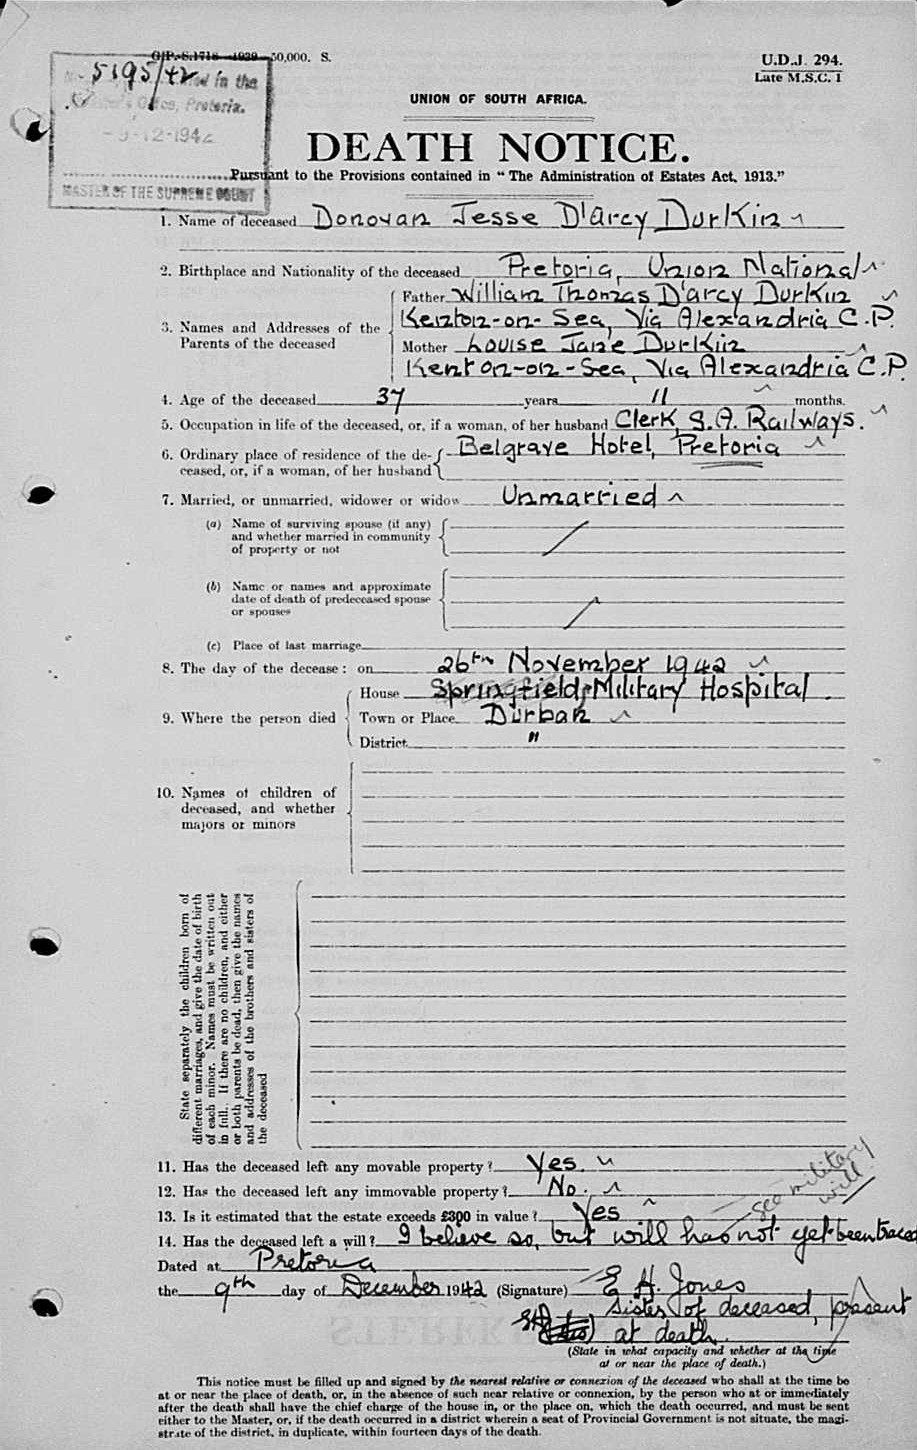 G.P.-S.1718—1939—50,000. S.
U.D.J. 294.
Late M.S.C. 1
5195/42
in the
Office, Pretoria.
-9-12-1942
MASTER OF THE SUPREME COURT
UNION OF SOUTH AFRICA.
DEATH NOTICE.
Pursuant to the Provisions contained in "The Administration of Estates Act, 1913."
1. Name of deceased Donovan Jesse D'Arcy Durkin
2. Birthplace and Nationality of the deceased Pretoria, Union National
3. Names and Addresses of the Parents of the deceased
Father William Thomas D'arcy Durkin
Kenton-on-Sea, Via Alexandria C.P.
Mother Louise Jane Durkin
Kenton-on-Sea, Via Alexandria C.P.
4. Age of the deceased 37 years 11 months.
5. Occupation in life of the deceased, or, if a woman, of her husband Clerk, S.A. Railways.
6. Ordinary place of residence of the de- Belgrave Hotel, Pretoria
ceased, or, if a woman, of her husband
7. Married, or unmarried, widower or widow Unmarried
(a) Name of surviving spouse (if any)
and whether married in community
of property or not
(b) Name or names and approximate
date of death of predeceased spouse
or spouses
(c) Place of last marriage
8. The day of the decease: on 26th November 1942
9. Where the person died
House Springfield Military Hospital.
Town or Place Durban
District "
10. Names of children of
deceased, and whether
majors or minors
State separately the children born of
different marriages, and give the date of birth
of each minor. Names must be written out
in full. If there are no children, and either
or both parents be dead, then give the names
and addresses of the brothers and sisters of
the deceased
11. Has the deceased left any movable property? Yes.
12. Has the deceased left any immovable property? No.
see military
will
13. Is it estimated that the estate exceeds £300 in value? Yes
14. Has the deceased left a will? I believe so, but will has not yet been traced
Dated at Pretoria
the 9th day of December 1942 (Signature) E H. Jones
Sister of deceased, present
at death.
(State in what capacity and whether at the time
at or near the place of death.)
This notice must be filled up and signed by the nearest relative or connexion of the deceased who shall at the time be
at or near the place of death, or, in the absence of such near relative or connexion, by the person who at or immediately
after the death shall have the chief charge of the house in, or the place on, which the death occurred, and must be sent
either to the Master, or, if the death occurred in a district wherein a seat of Provincial Government is not situate, the magi-
strate of the district, in duplicate, within fourteen days of the death.